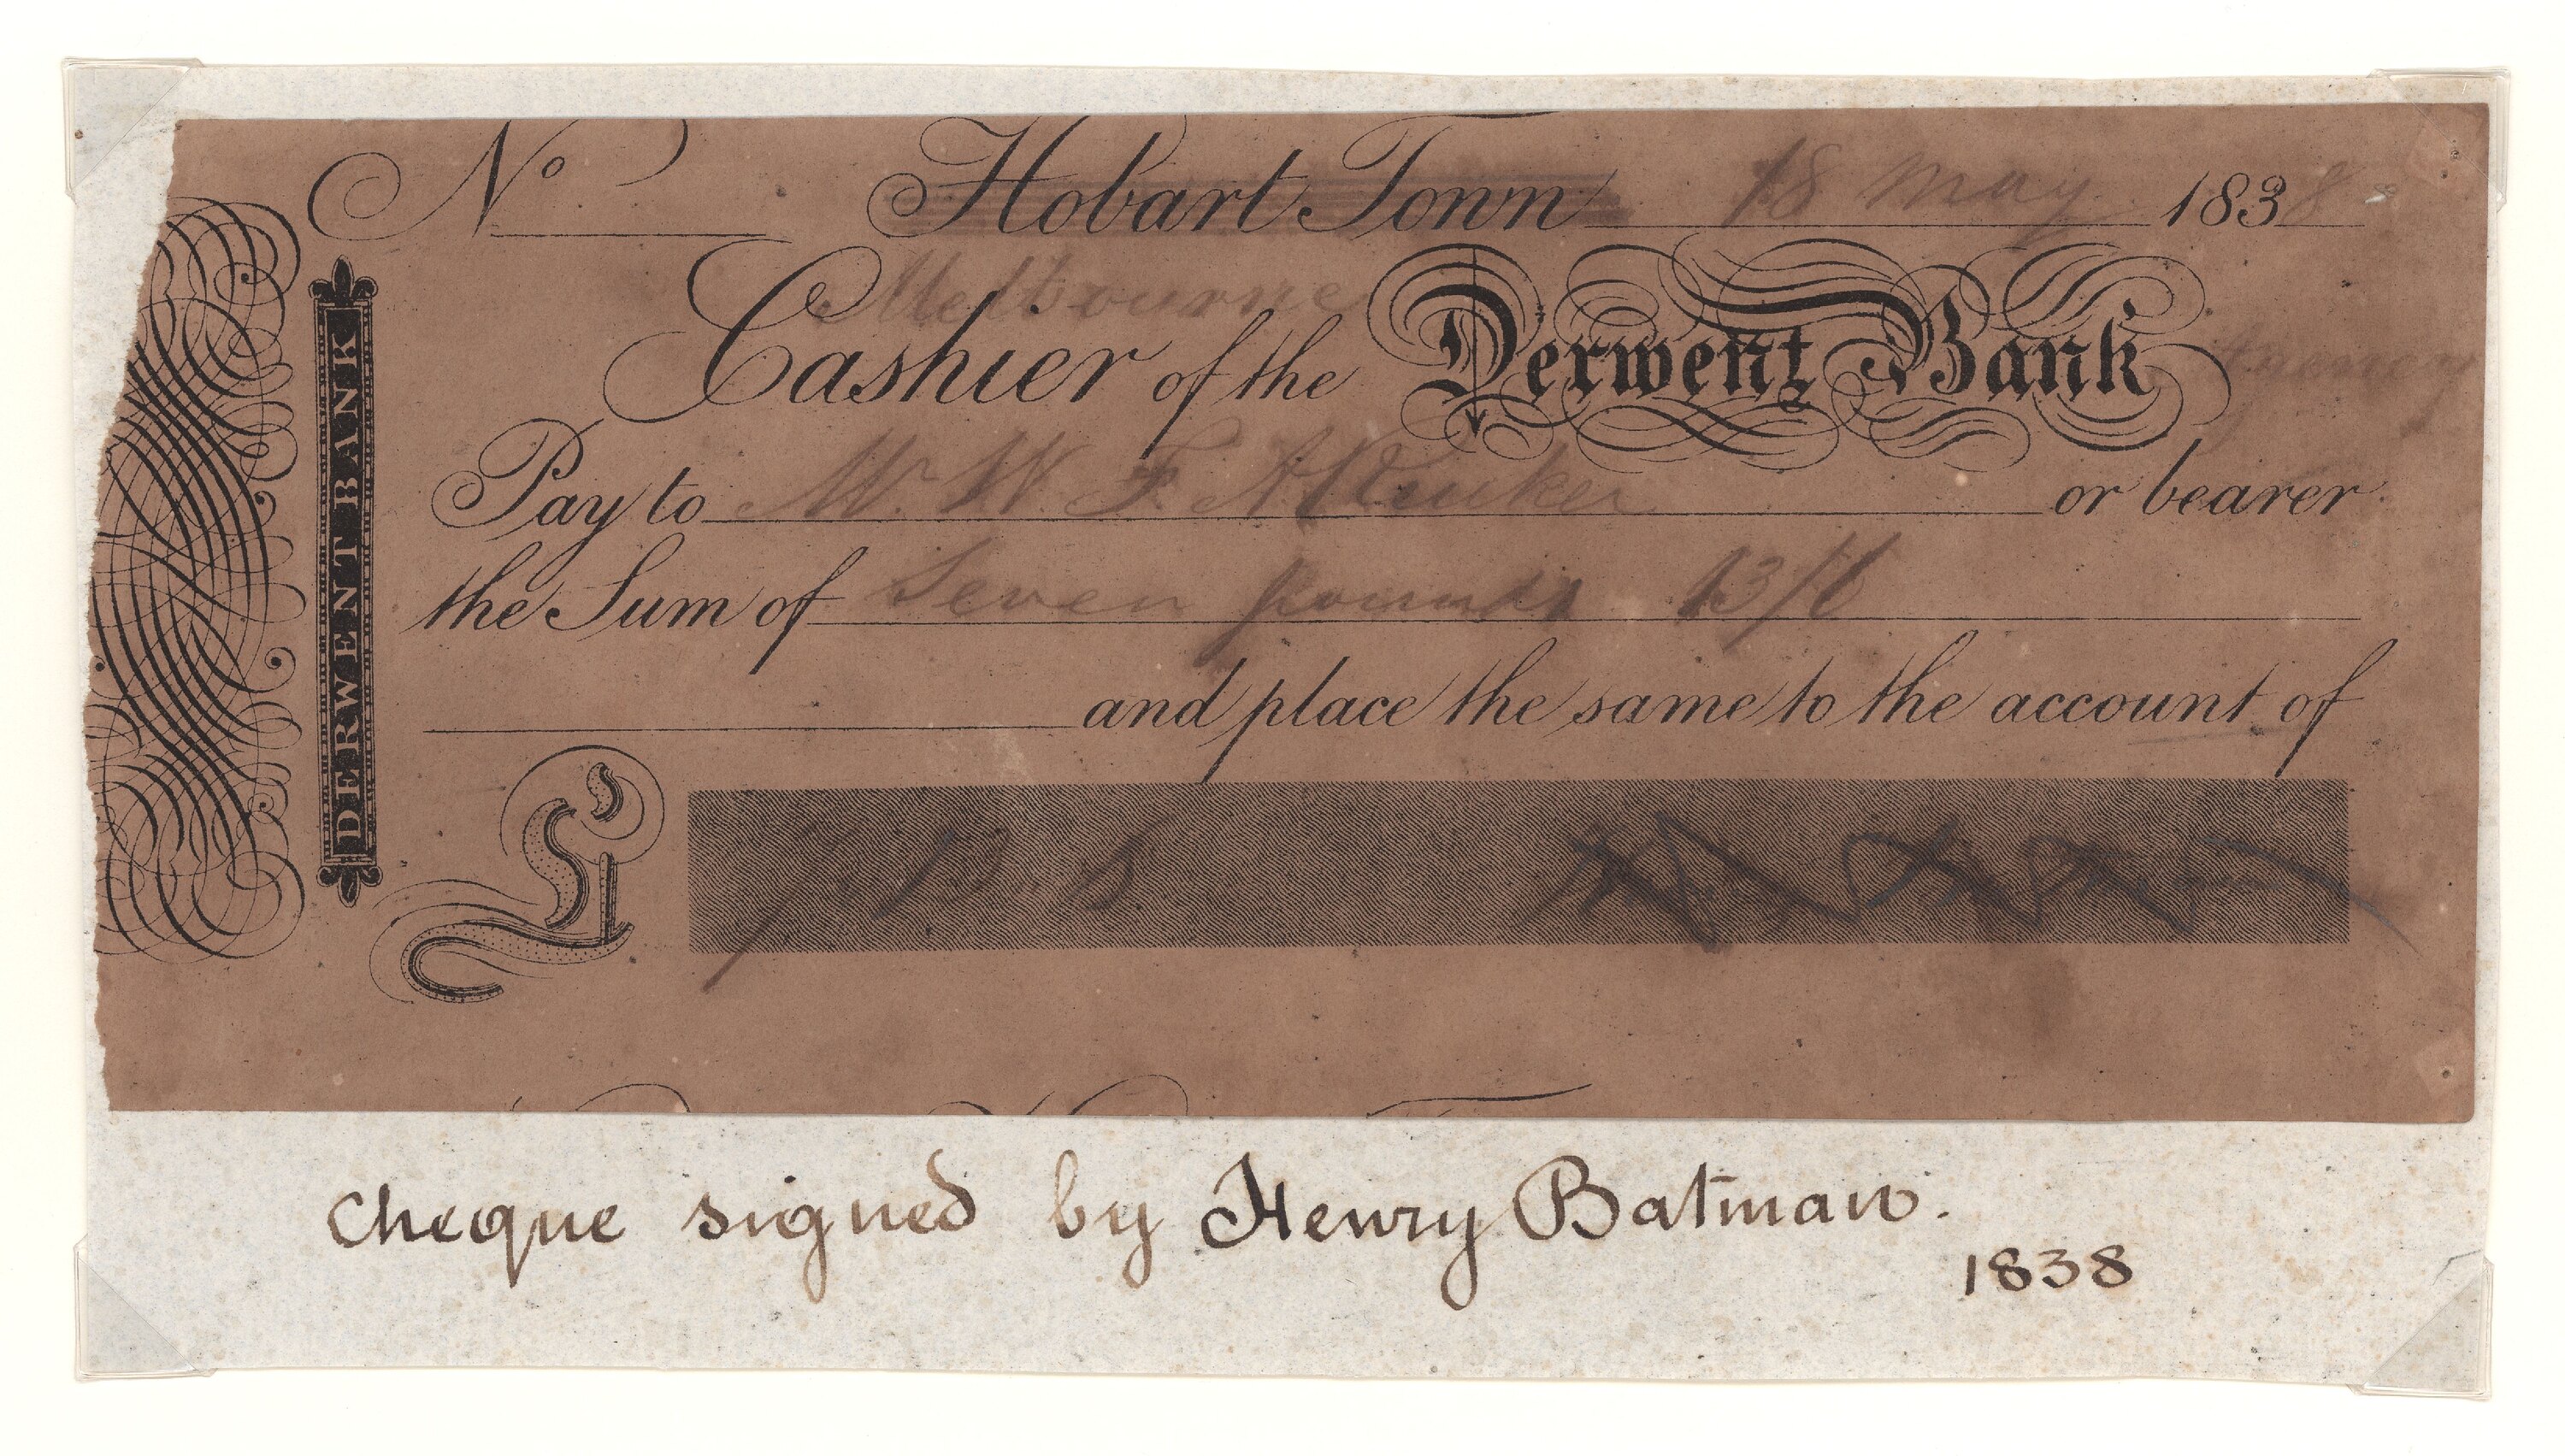 No Hobart Town 18 May 1838
Melbourne
Cashier of the Derwent Bank Agency
Pay to Mr. W. F. A. Rucker or bearer
the Sum of Seven pounds 13/6
and place the same to the account of
£ 7. 13. 6
DERWENT BANK
Cheque signed by Henry Batman.
1838